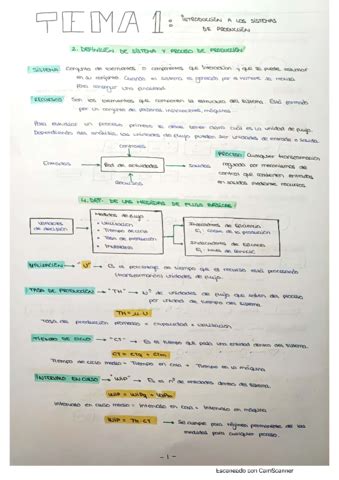 TEMA 1: INTRODUCCIÓN A LOS SISTEMAS
DE PRODUCCIÓN
2. DEFINICIÓN DE SISTEMA Y PROCESO DE PRODUCCIÓN
SISTEMA conjunto de elementos o componentes que interaccionan y que se puede
en su conjunto. Cuando un sistema es generado por el hombre se
para conseguir una finalidad.
RECURSOS Son los elementos que componen la estructura del sistema. Está formado
por un conjunto de personas, instrucciones, máquinas.
Para estudiar un proceso primero se debe tener claro cuál es la unidad de flujo.
Dependiendo del análisis, las unidades de flujo pueden ser unidades de entrada o salida.
controles
Entradas → Red de actividades → Salidas
Recursos
PROCESO Cualquier transformación
regulada por mecanismos de
control que convierten entradas
en salidas mediante recursos.
4. DEF. DE LAS MEDIDAS DE FLUJO BÁSICAS
Variables
de decisión
Medidas de flujo
• Utilización
• Tiempo de ciclo
• Tasa de producción
• Inventario
Indicadores de Eficiencia
Ej: Coste de la producción
Indicadores de Eficacia
Ej: Nivel de servicio
UTILIZACIÓN → "U" → Es el porcentaje de tiempo que el recurso está procesando
(transformando) unidades de flujo.
TASA DE PRODUCCIÓN → "TH" → Nº de unidades de flujo que salen del proceso
por unidad de tiempo del sistema.
TH = μ · U
Tasa de producción = capacidad × utilización
TIEMPO DE CICLO → "CT" → Es el tiempo que pasa una entidad dentro del sistema.
CT = CTq + CTm
Tiempo de ciclo medio = Tiempo en cola + Tiempo en la máquina
INVENTARIO EN CURSO → "WIP" → Es el nº de entidades dentro del sistema.
WIP = WIPq + WIPm
Inventario en curso medio = Inventario en cola + Inventario en máquina
WIP = TH · CT → Se cumple para régimen permanente de las
medidas para cualquier proceso.
- 1 -
Escaneado con CamScanner